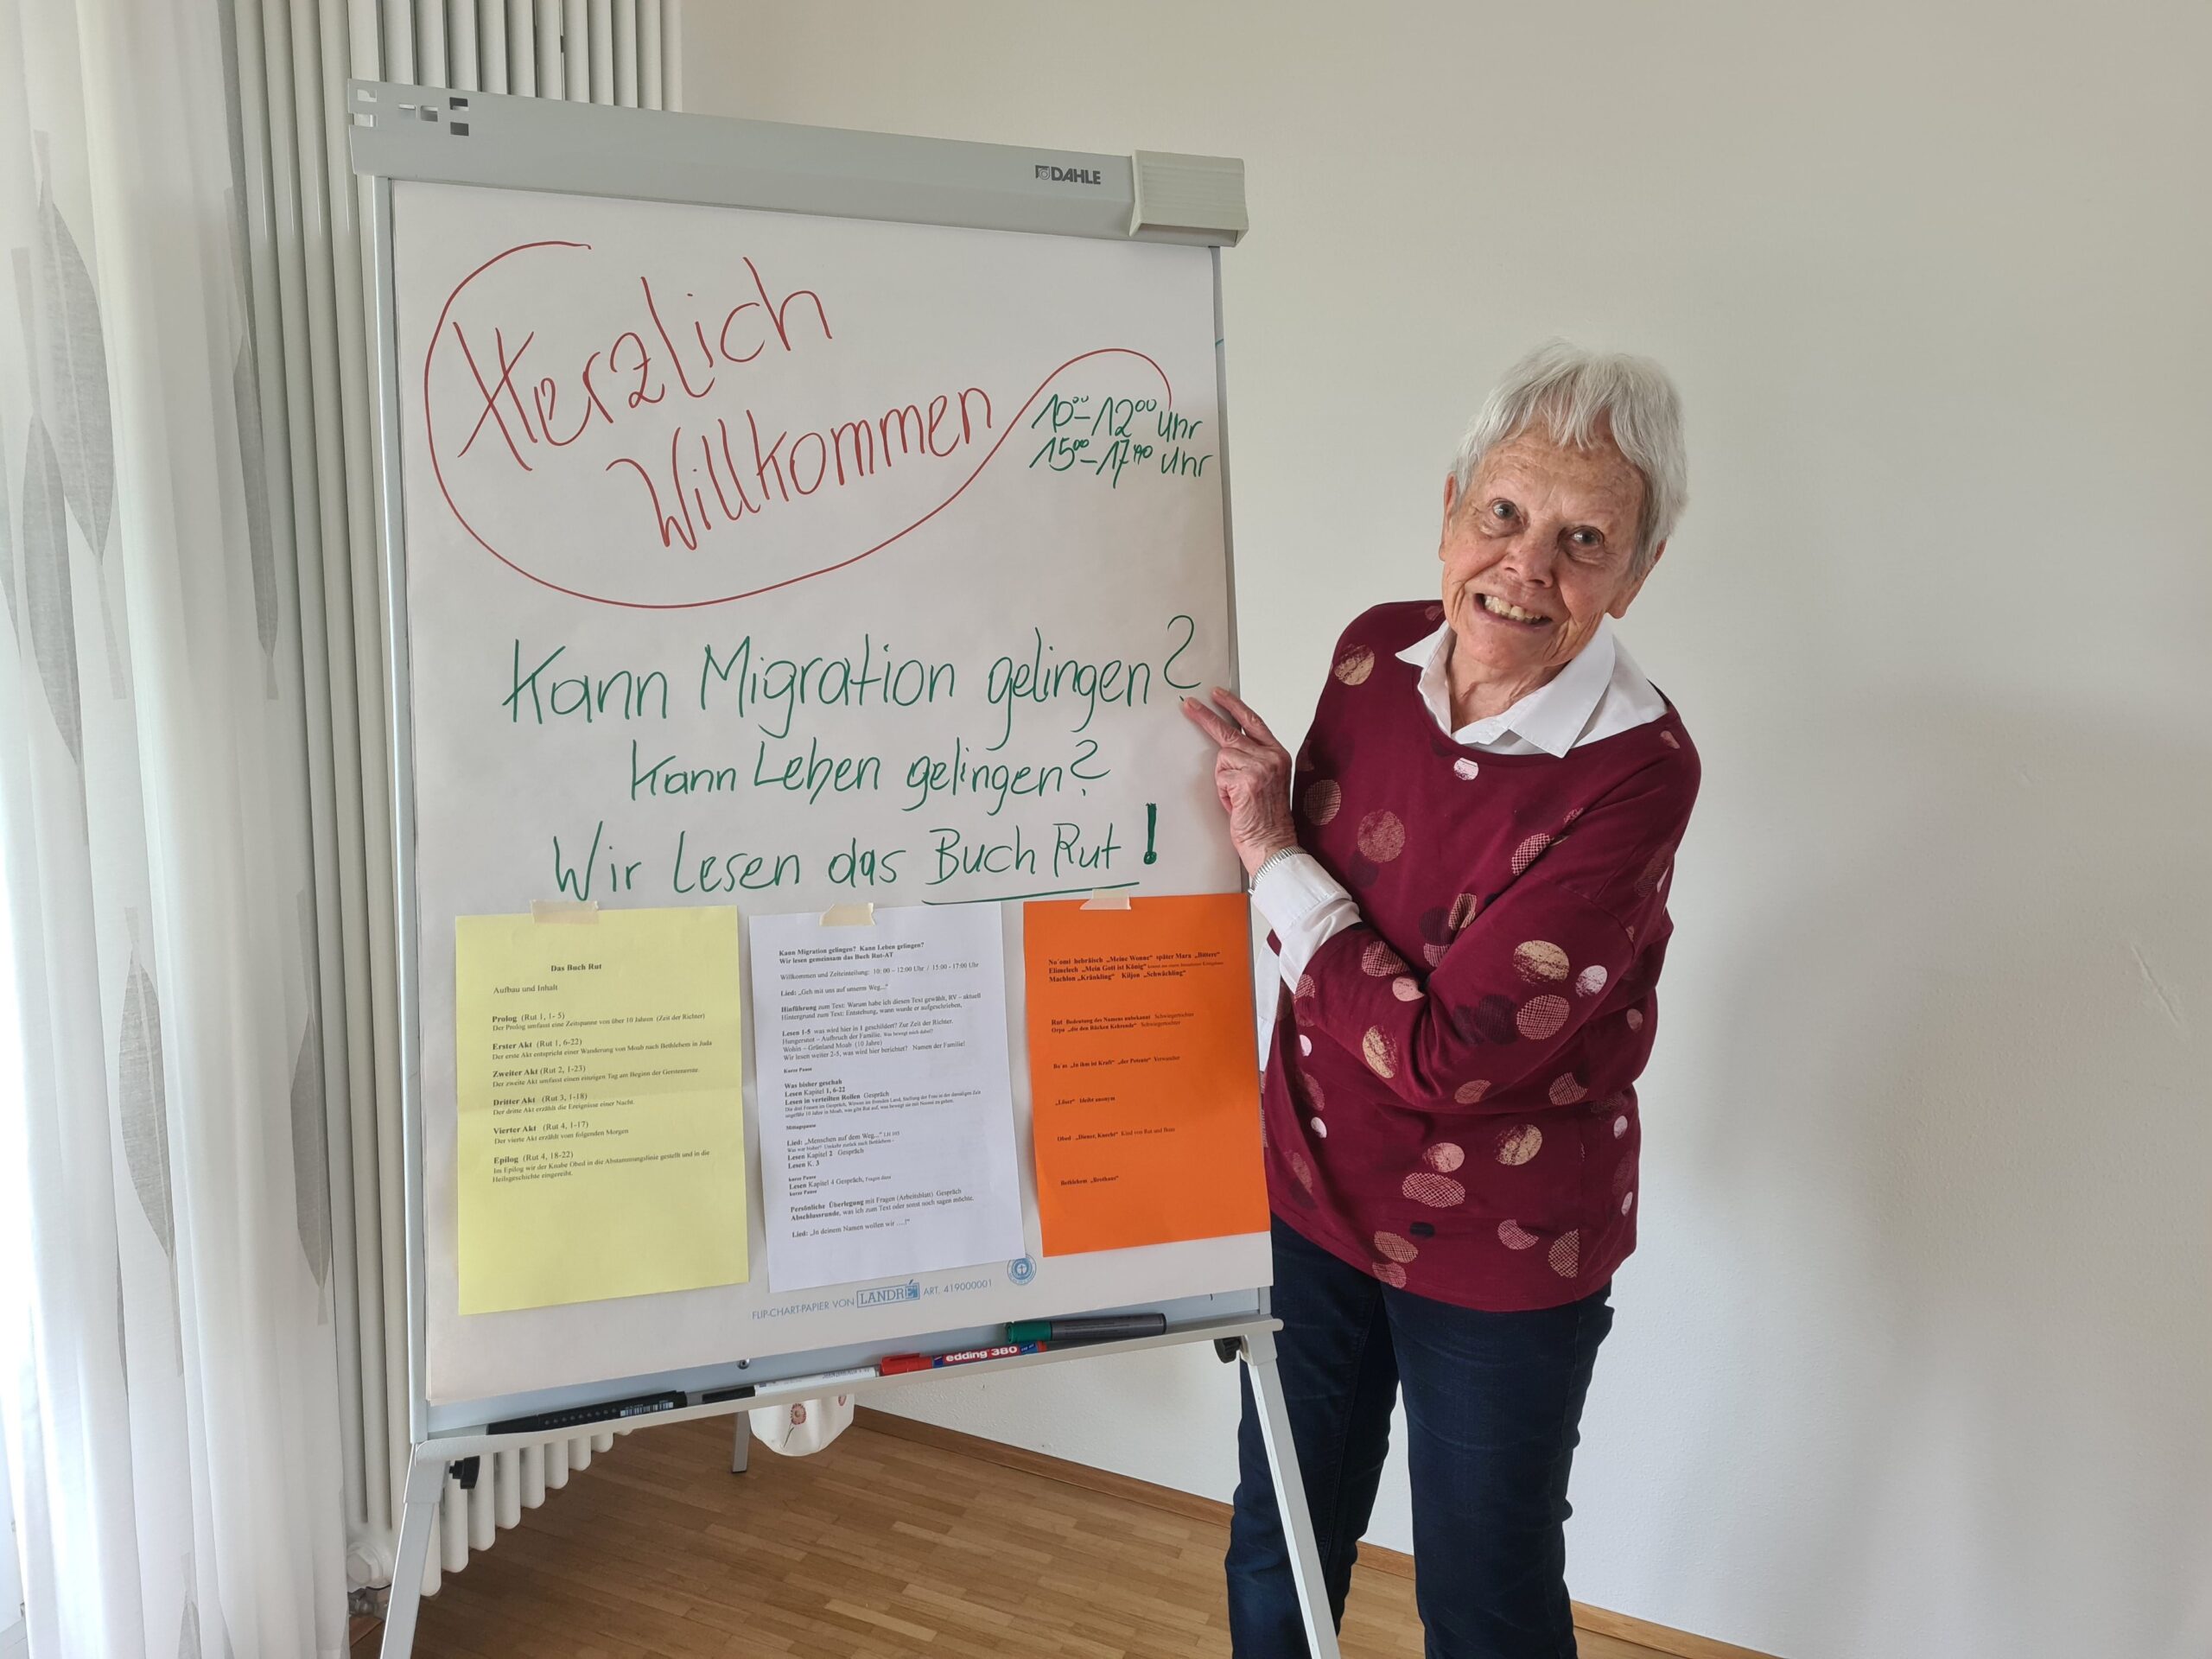 DAHLE
Herzlich
Willkommen
10⁰⁰-12⁰⁰ Uhr
15⁰⁰-17⁰⁰ Uhr
Kann Migration gelingen?
Kann Leben gelingen?
Wir lesen das Buch Rut!
Das Buch Rut
Aufbau und Inhalt
Prolog (Rut 1, 1- 5)
Der Prolog umfasst eine Zeitspanne von über 10 Jahren (Zeit der Richter)
Erster Akt (Rut 1, 6-22)
Der erste Akt entspricht einer Wanderung von Moab nach Bethlehem in Juda
Zweiter Akt (Rut 2, 1-23)
Der zweite Akt umfasst einen einzigen Tag am Beginn der Gerstenernte.
Dritter Akt (Rut 3, 1-18)
Der dritte Akt erzählt die Ereignisse einer Nacht.
Vierter Akt (Rut 4, 1-17)
Der vierte Akt erzählt vom folgenden Morgen
Epilog (Rut 4, 18-22)
Im Epilog wir der Knabe Obed in die Abstammungslinie gestellt und in die
Heilsgeschichte eingereiht.
Kann Migration gelingen? Kann Leben gelingen?
Wir lesen gemeinsam das Buch Rut-AT
Willkommen und Zeiteinteilung: 10: 00 – 12:00 Uhr / 15:00 - 17:00 Uhr
Lied: „Geh mit uns auf unserm Weg..."
Hinführung zum Text: Warum habe ich diesen Text gewählt, RV – aktuell
Hintergrund zum Text: Entstehung, wann wurde er aufgeschrieben,
Lesen 1-5 was wird hier in 1 geschildert? Zur Zeit der Richter.
Hungersnot – Aufbruch der Familie. Was bewegt mich dabei?
Wohin – Grünland Moab (10 Jahre)
Wir lesen weiter 2-5, was wird hier berichtet? Namen der Familie!
Kurze Pause
Was bisher geschah
Lesen Kapitel 1, 6-22
Lesen in verteilten Rollen Gespräch
Mittagspause
Lied: „Menschen auf dem Weg..."
Lesen Kapitel 2 Gespräch
Lesen K. 3
kurze Pause
Lesen Kapitel 4 Gespräch,
kurze Pause
Persönliche Überlegung mit Fragen (Arbeitsblatt) Gespräch
Abschlussrunde, was ich zum Text oder sonst noch sagen möchte.
Lied: „In deinem Namen wollen wir ....!"
No'omi hebräisch „Meine Wonne" später Mara „Bittere"
Elimelech „Mein Gott ist König"
Machlon „Kränkling" Kiljon „Schwächling"
Rut Bedeutung des Namens unbekannt Schwiegertochter
Orpa „die den Rücken Kehrende" Schwiegertochter
Bo'as „In ihm ist Kraft" „der Potente" Verwandter
„Löser" bleibt anonym
Obed „Diener, Knecht" Kind von Rut und Boas
Bethlehem „Brothaus"
FLIP-CHART-PAPIER VON LANDRÉ ART. 419000001
edding 380